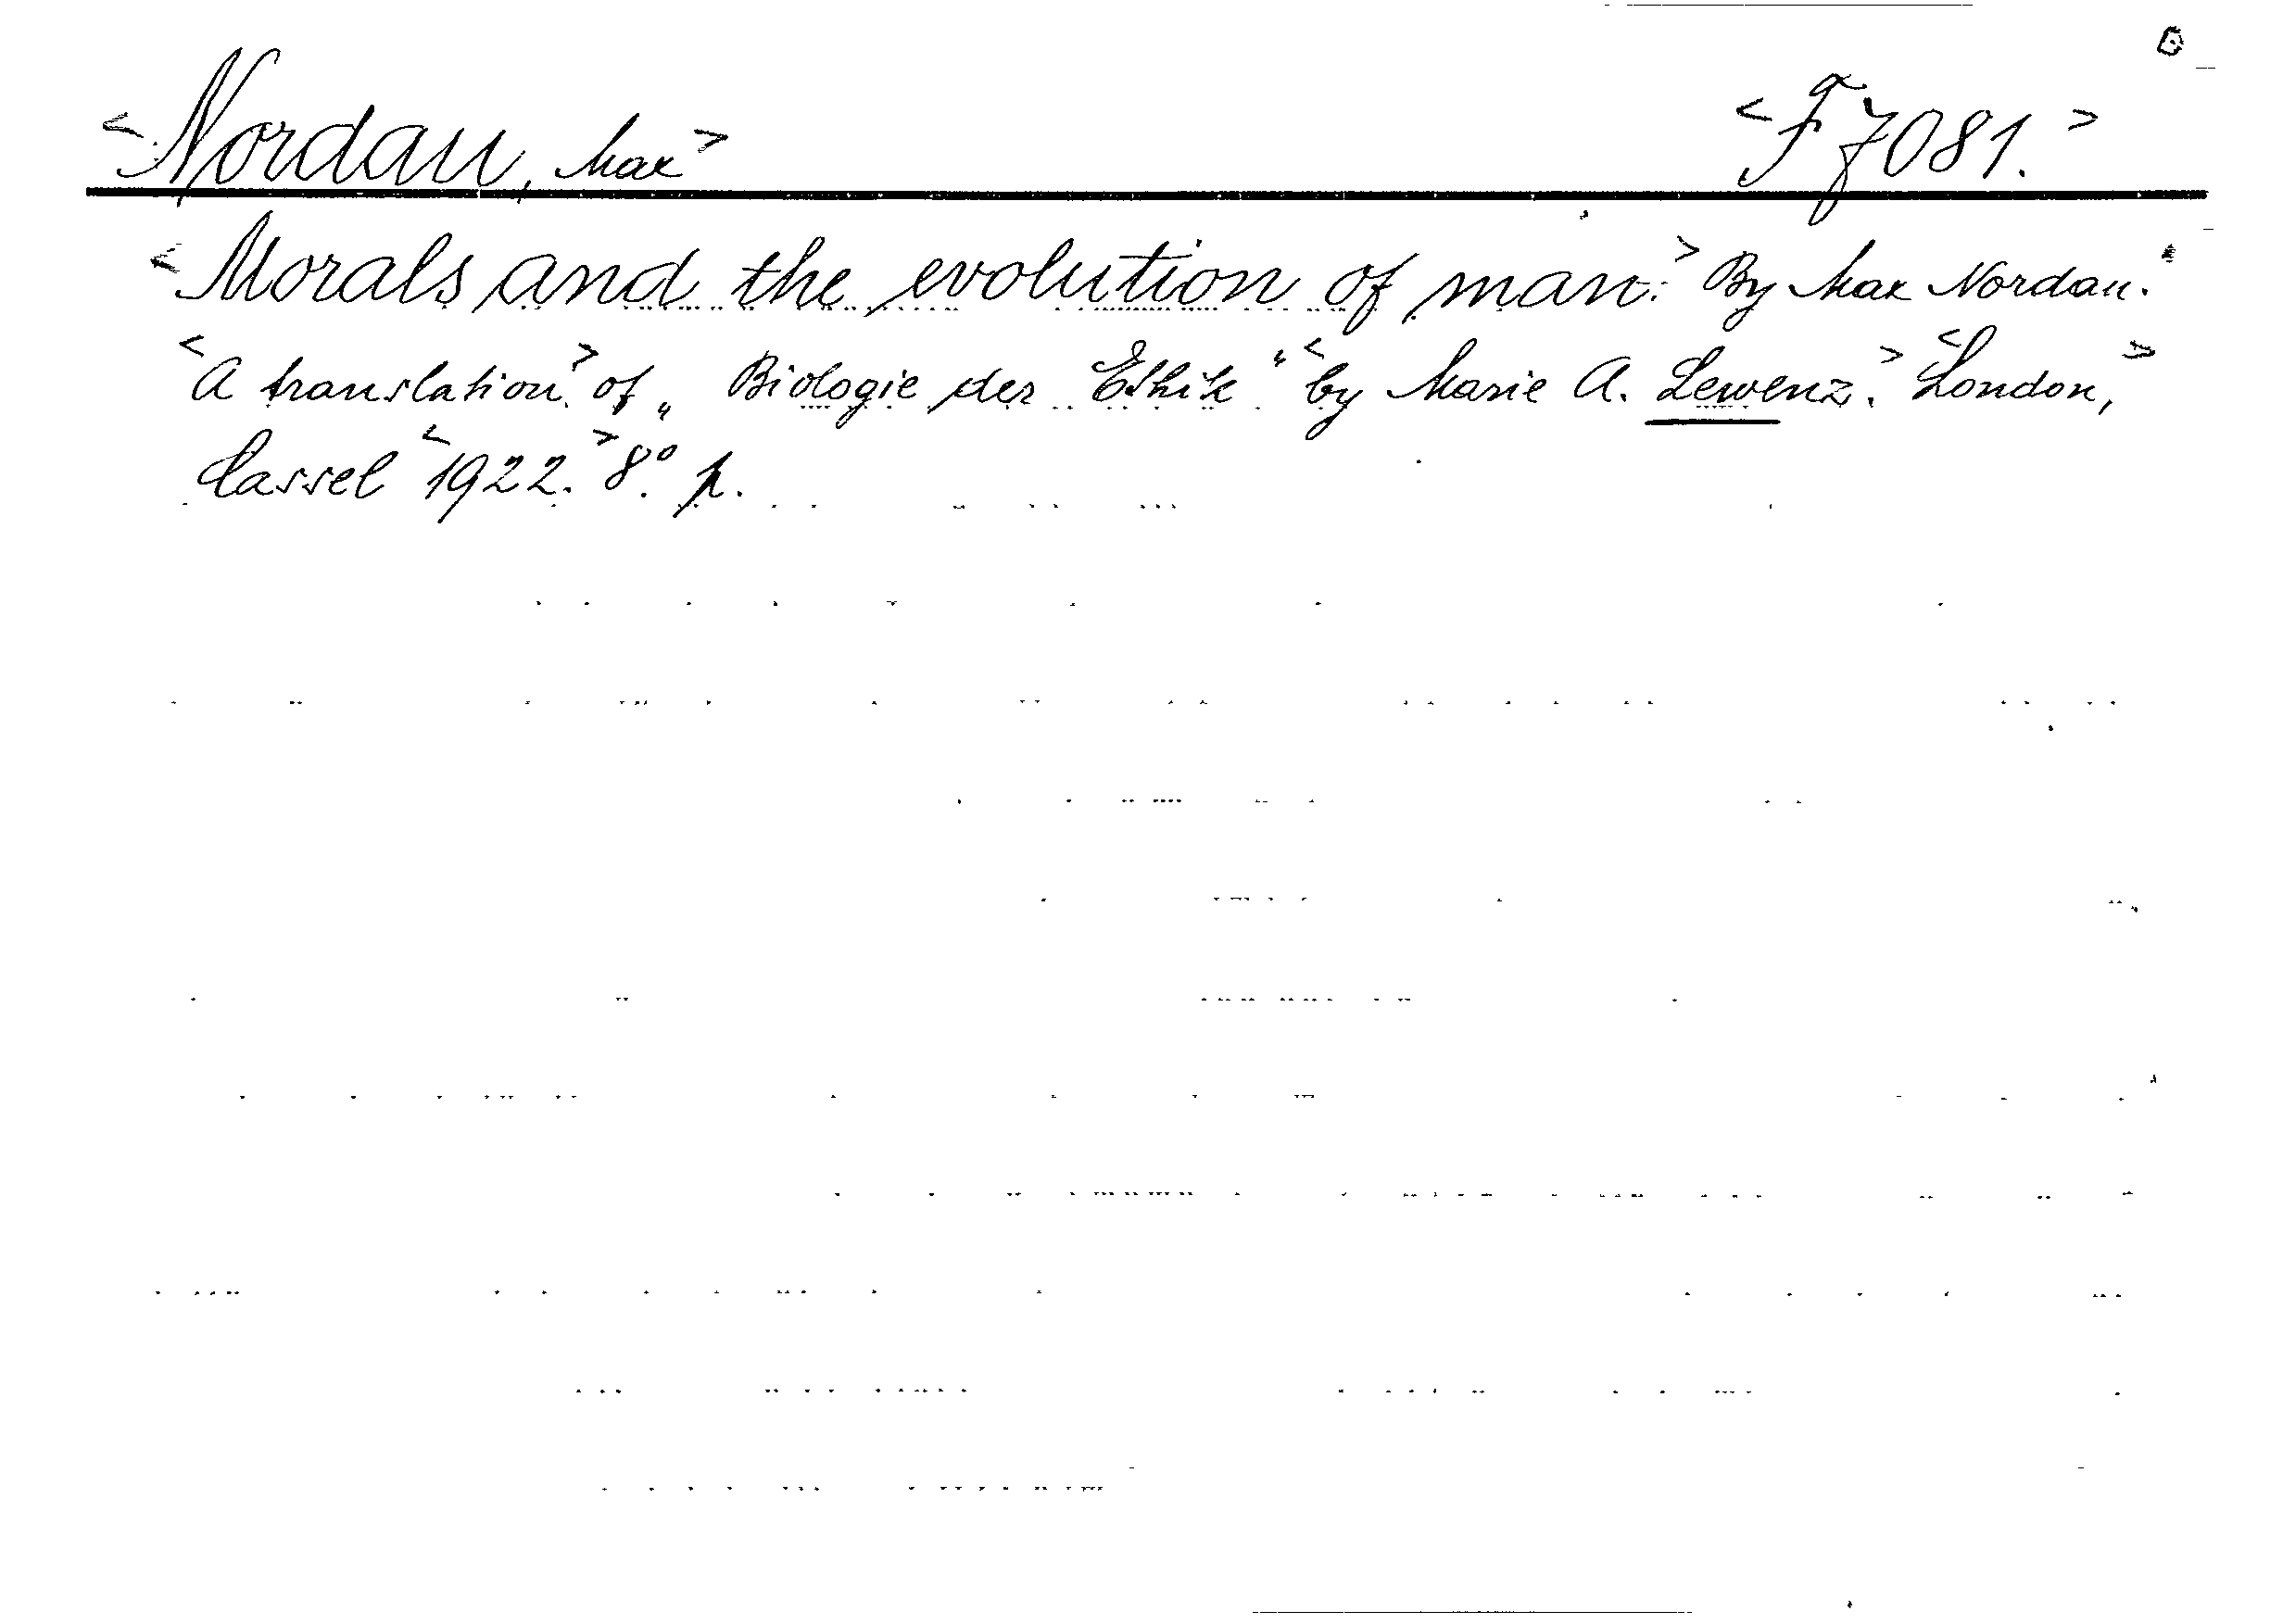 <Nordau, Max> <F 7081.>
<Morals and the evolution of man.> By Max Nordau.
<A translation> of „Biologie der Ethik" <by Marie A. Lewenz.> <London,>
Cassel <1922.> 8°. p.